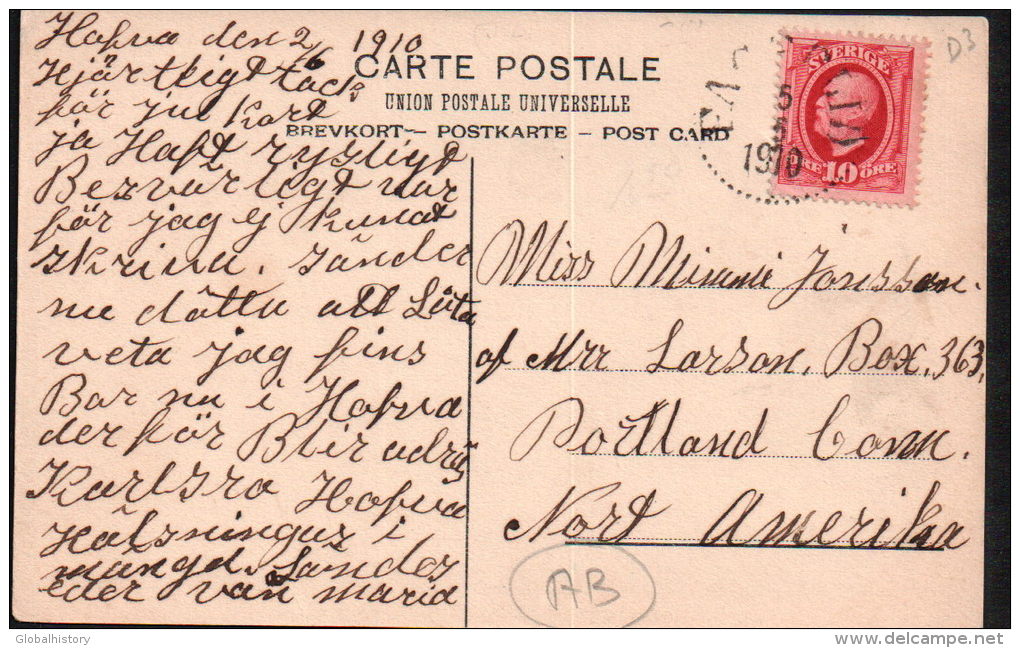 Hofva den 2/6 1910
Hjärtligt tack
för ju Kort
ja Haft rysligt
Besvärligt var
för jag ej kunat
skriva. sänder
nu detta att Låta
veta jag fins
Bar nu i Hofva
der för Blir adräs
Karlsro Hofva
Hälsningar i
mängd. Sändes
eder vän maria
CARTE POSTALE
UNION POSTALE UNIVERSELLE
BREVKORT — POSTKARTE — POST CARD
SVERIGE
ÖRE 10 ÖRE
1910
D3
Miss Minnie Jonsson.
of Mrr Larson, Box. 363,
Portland Conn.
Nort Amerika
AB
Globalhistory
delcampe.net